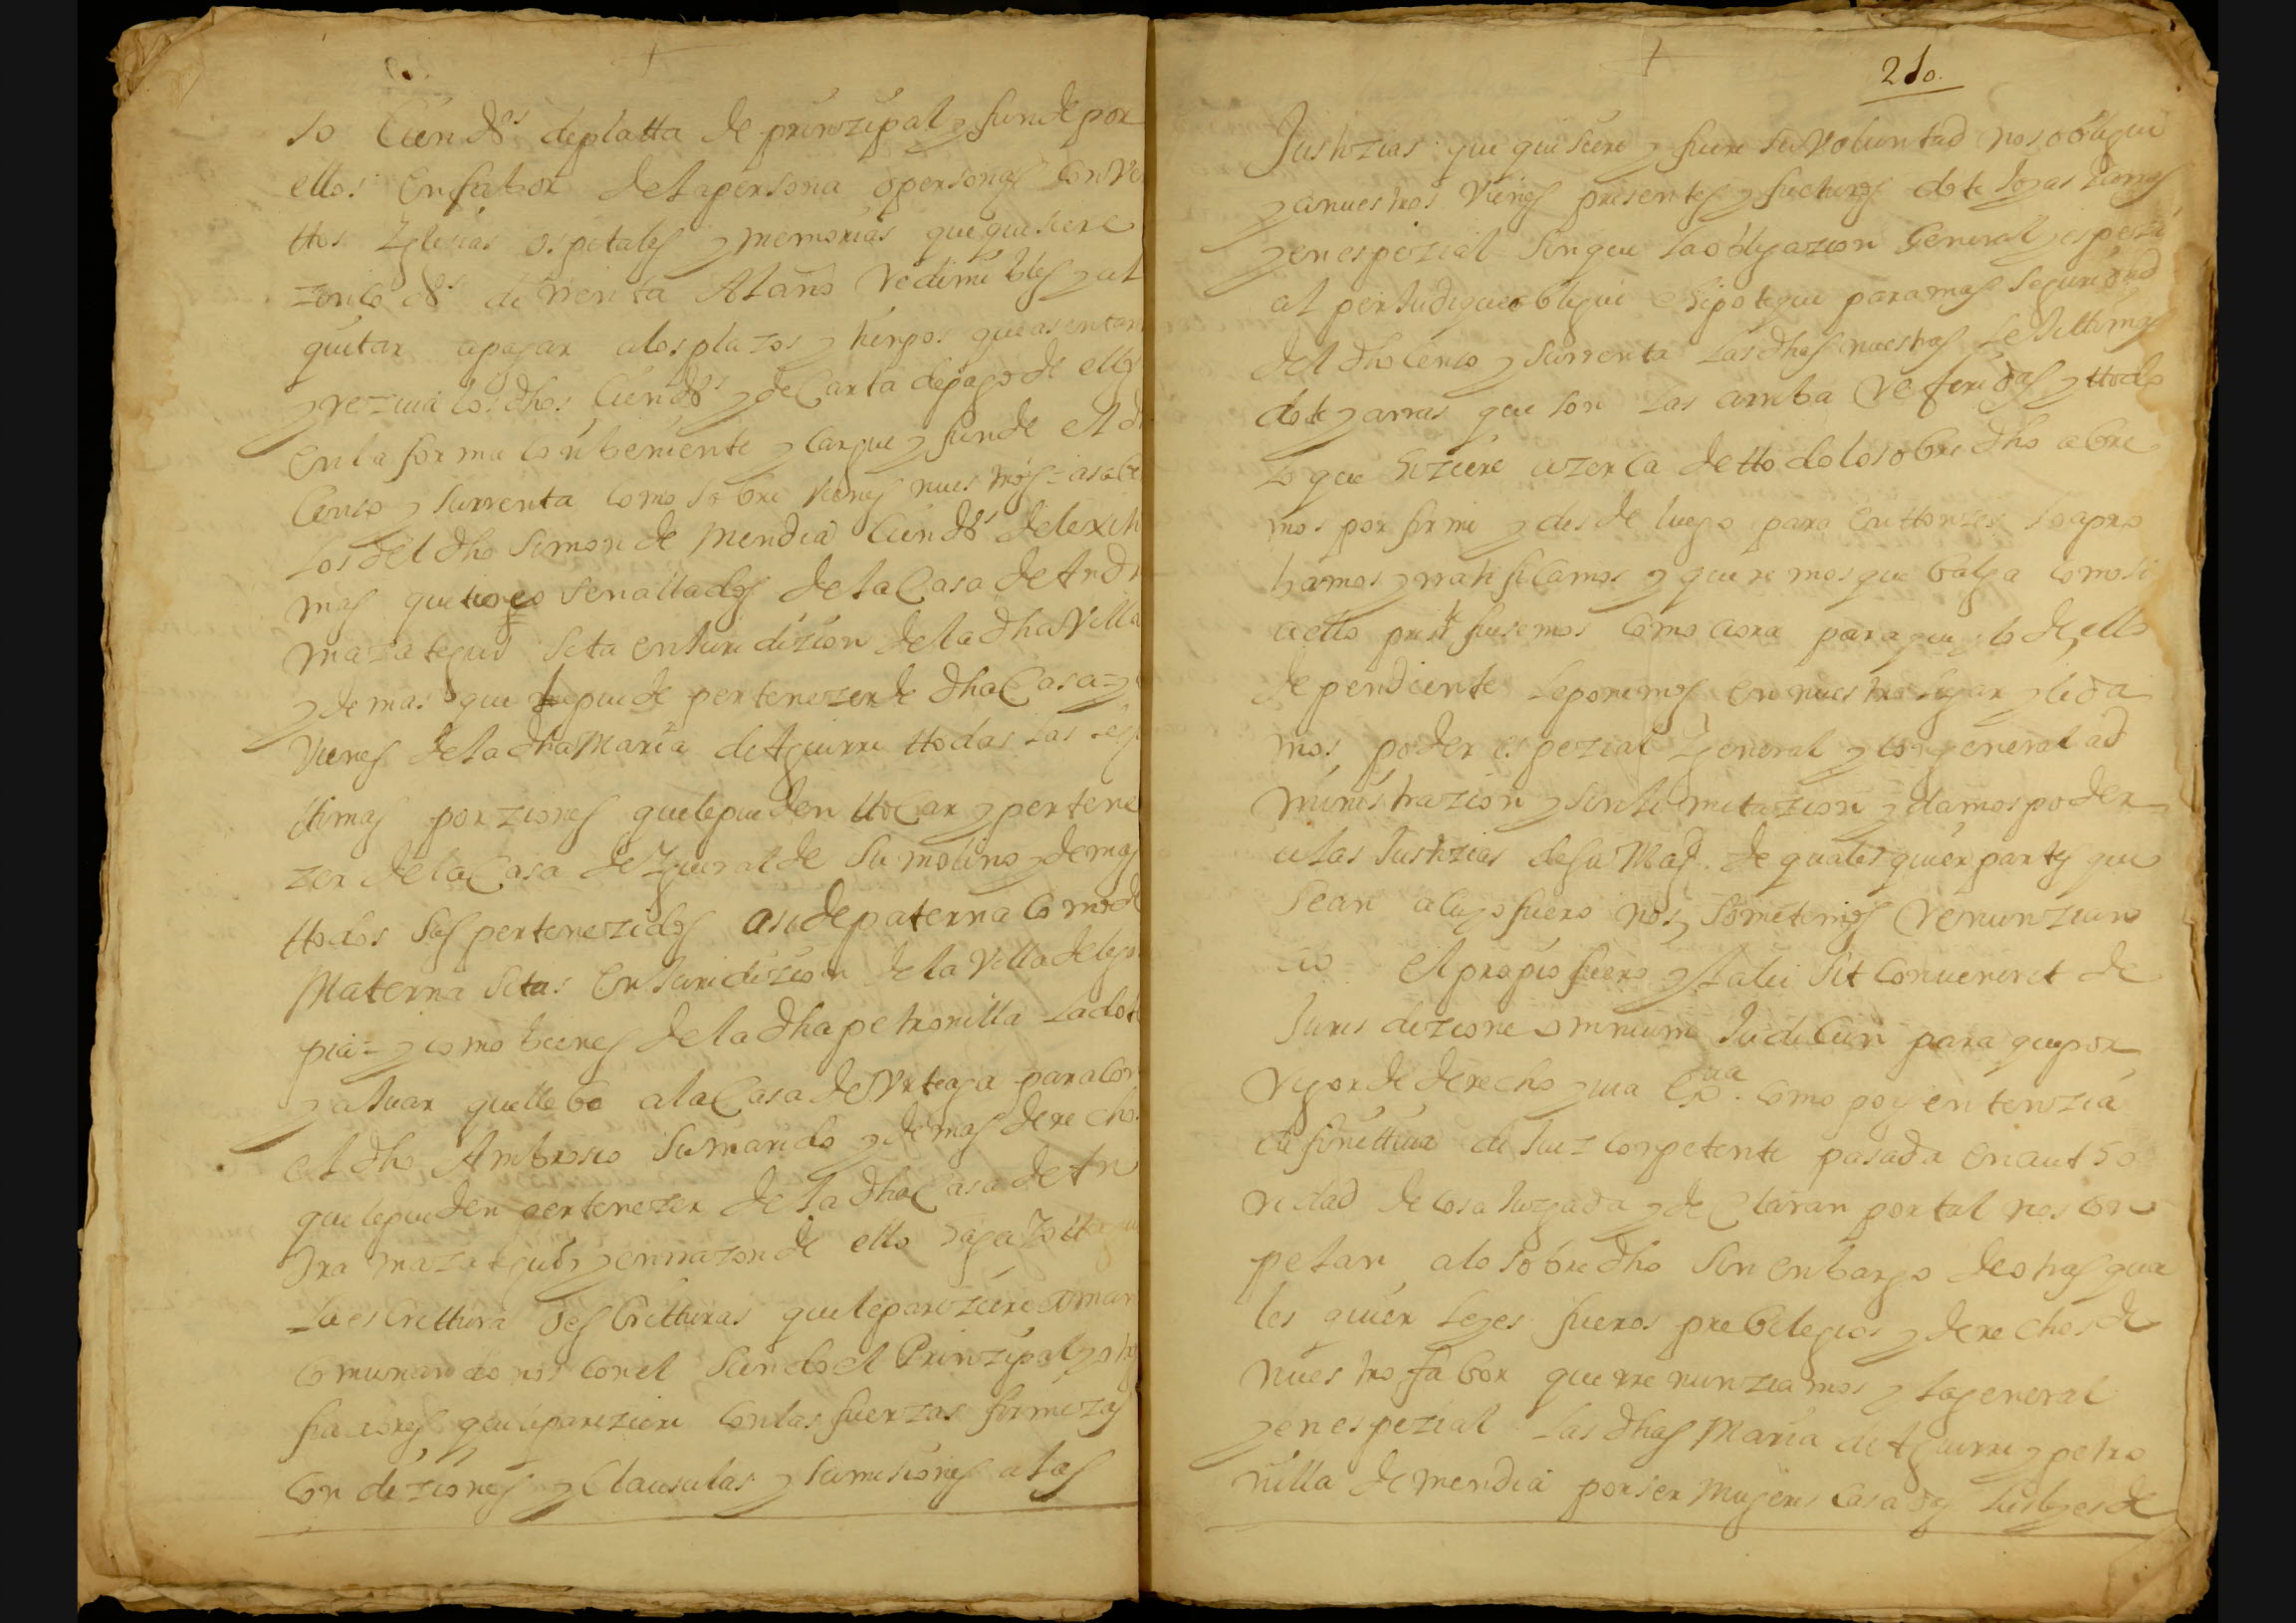 so Cien ds. de platta de prinzipal y funde por
ellos en fabor de la persona o personas conven
ttos Yglesias ospitales y memorias que quisiere
zinco ds. de rrenta Al año redimibles y al
quitar a pagar a los plazos y tienpos que asentare
y rreziua los dhos. Cien ds. y de Carta de pago de ellos
en la forma conbeniente y cargue y funde el dho
Censo y su rrenta como sobre vienes nuestros = a saber
los del dho Simon de Mendia Cien ds. de lexiti
mas que tengo senallados de la Casa de Andra
mazategui sita en Juridizion de la dha Villa
y demas que me puede pertenezer de dha Casa = y
vienes de la dha Maria de Aguirre ttodas las lexi
timas porziones que le pueden ttocar y pertene
zer de la Casa de Ygueralde su molino y demas
ttodos sus pertenezidos asi de paterna como de
Materna sitas en Juridizion de la Villa de lega
pia = y como bienes de la dha petronilla la dote
y ajuar que llebo a la Casa de Vrteaga para con
el dho Ambrosio su marido y demas derechos
que le pueden pertenezer de la dha Casa de An
dra mazategui y en rrazon de ello haga y otorgue
la escrittura o escritturas que le pareziere de man
comunandonos con el siendo el Prinzipal y otros
fiadores que le pareziere con las fuerzas firmezas
Condiziones y Clausulas y sumisiones a las
210.
Justizias que quisiere y fuere su voluntad nos obligue
y a nuestros vienes presentes y futuros dote y
y en espezial sin que la obligazion General y espezi
al perJudique obligue e ipoteque para mas seguridad
del dho Censo y su rrenta las dhas nuestras lexittimas
dote y arras que son las arriba referidas y ttodo
lo que hiziere azerca de ttodo lo sobre dho abre
mos por firme y desde luego para enttonzes lo apro
bamos y rratificamos y queremos que balga como si
a ello prestt. fuesemos como aora para que lo de ello
dependiente le ponemos en nuestro lugar y le da
mos poder espezial y general y con general ad
ministrazion y sin limitazion y damos poder
a las Justizias de su Magd. de qualesquier partes que
sean a cuyo fuero nos sometemos rrenunziamo
nro el propio fuero y la lei sit convenerit de
Jurisdizione omnium Judicun para que por
vigor de derecho y via exva. como por sentenzia
difinittiua de Juez conpetente pasada en autto
ridad de cosa Juzgada y declaran por tal nos con
pelan a lo sobre dho sin enbargo de otras qua
les quier leyes fueros prebilegios y derechos de
nuestro fabor que rrenunziamos y la general
y en espezial las dhas Maria de Aguirre y petro
nilla de mendia por ser Mugeres casadas las leyes de